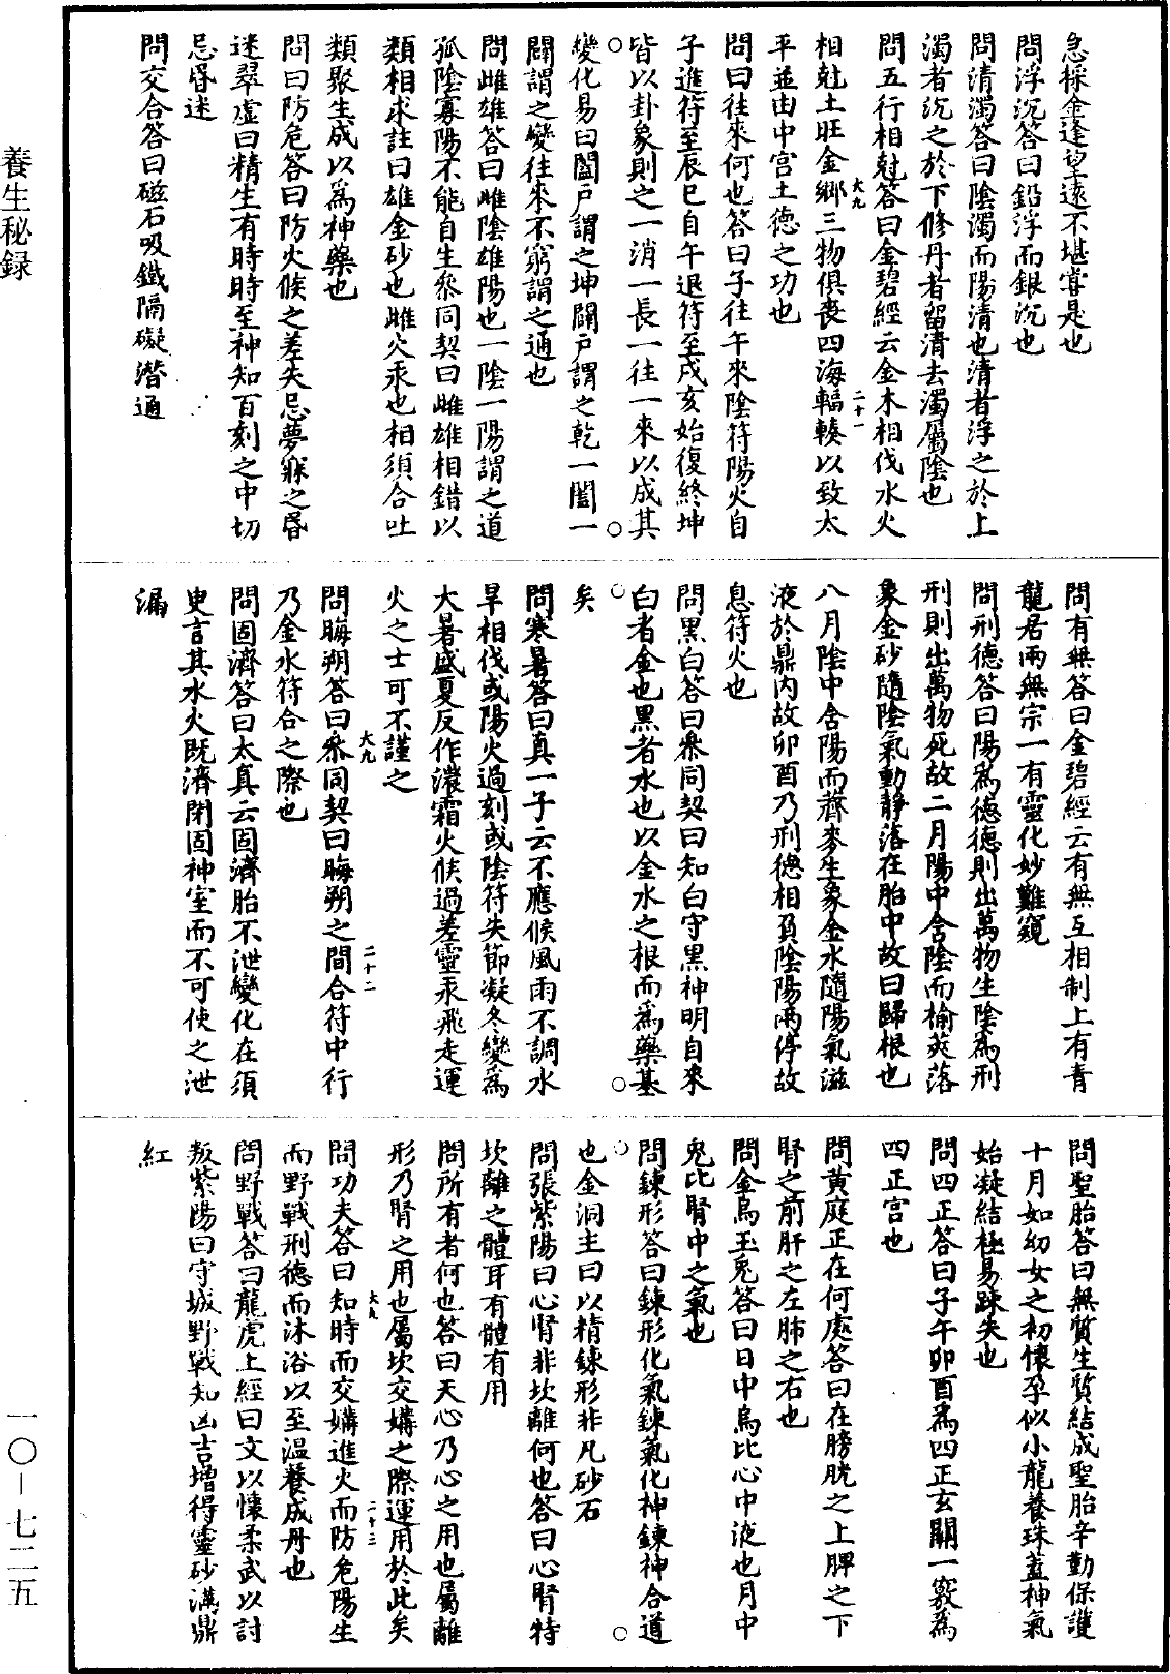 急採金逢望遠不堪嘗是也
問浮沉答曰鉛浮而銀沉也
問清濁答曰陰濁而陽清也清者浮之於上
濁者沉之於下修丹者留清去濁屬陰也
問五行相尅答曰金碧經云金木相伐水火
大九
二十一
相尅土旺金鄉三物俱喪四海輻輳以致太
平並由中宫土德之功也
問曰往來何也答曰子往午來陰符陽火自
子進符至辰巳自午退符至戌亥始復終坤
皆以卦象則之一消一長一往一來以成其
變化易曰闔戶謂之坤闢戶謂之乾一闔一
闢謂之變往來不窮謂之通也
問雌雄答曰雌陰雄陽也一陰一陽謂之道
孤陰寡陽不能自生叅同契曰雌雄相錯以
類相求註曰雄金砂也雌火汞也相須合吐
類聚生成以爲神藥也
問曰防危答曰防火候之差失忌夢寐之昏
迷翠虛曰精生有時時至神知百刻之中切
忌昏迷
問交合答曰磁石吸鐵隔礙潛通
問有無答曰金碧經云有無互相制上有青
龍居兩無宗一有靈化妙難窺
問刑德答曰陽爲德德則出萬物生陰爲刑
刑則出萬物死故二月陽中含陰而榆莢落
象金砂隨陰氣動靜落在胎中故曰歸根也
八月陰中含陽而薺麥生象金水隨陽氣滋
液於鼎内故卯酉乃刑德相負陰陽兩停故
息符火也
問黑白答曰叅同契曰知白守黑神明自來
白者金也黑者水也以金水之根而爲藥基
矣
問寒暑答曰真一子云不應候風雨不調水
旱相伐或陽火過刻或陰符失節凝冬變爲
大暑盛夏反作濃霜火候過差靈汞飛走運
火之士可不謹之
大九
二十二
問晦朔答曰叅同契曰晦朔之間合符中行
乃金水符合之際也
問固濟答曰太真云固濟胎不泄變化在須
臾言其水火既濟閉固神室而不可使之泄
漏
問聖胎答曰無質生質結成聖胎辛勤保護
十月如幼女之初懷孕似小龍養珠蓋神氣
始凝結極易踈失也
問四正答曰子午卯酉爲四正玄關一竅爲
四正宫也
問黄庭正在何處答曰在膀胱之上脾之下
腎之前肝之左肺之右也
問金烏玉兔答曰日中烏比心中液也月中
兔比腎中之氣也
問鍊形答曰鍊形化氣鍊氣化神鍊神合道
也金洞主曰以精鍊形非凡砂石
問張紫陽曰心腎非坎離何也答曰心腎特
坎離之體耳有體有用
問所有者何也答曰天心乃心之用也屬離
形乃腎之用也屬坎交媾之際運用於此矣
大九
二十三
問功夫答曰知時而交媾進火而防危陽生
而野戰刑德而沐浴以至温養成丹也
問野戰答曰龍虎上經曰文以懷柔武以討
叛紫陽曰守城野戰知凶吉增得靈砂滿鼎
紅
養生秘録
一〇－七二五